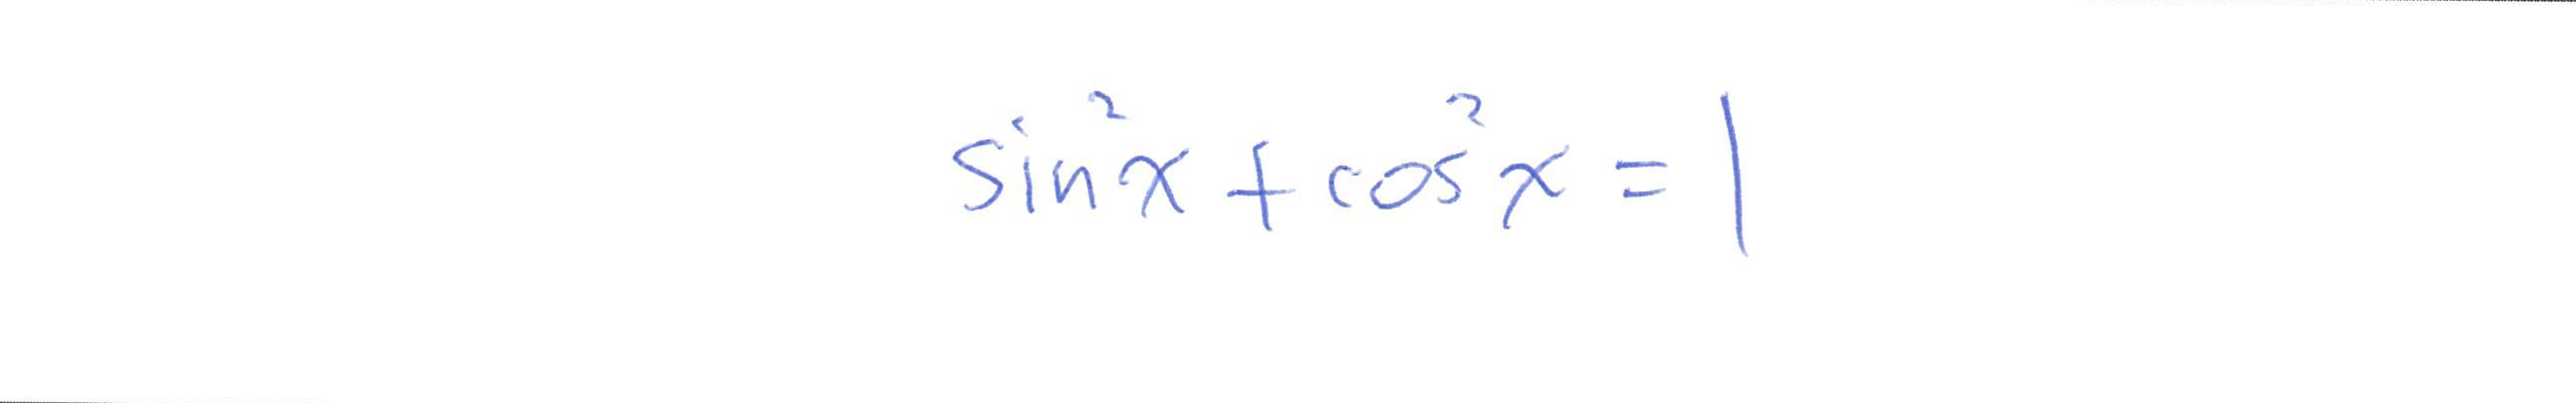 sin²x + cos²x = 1